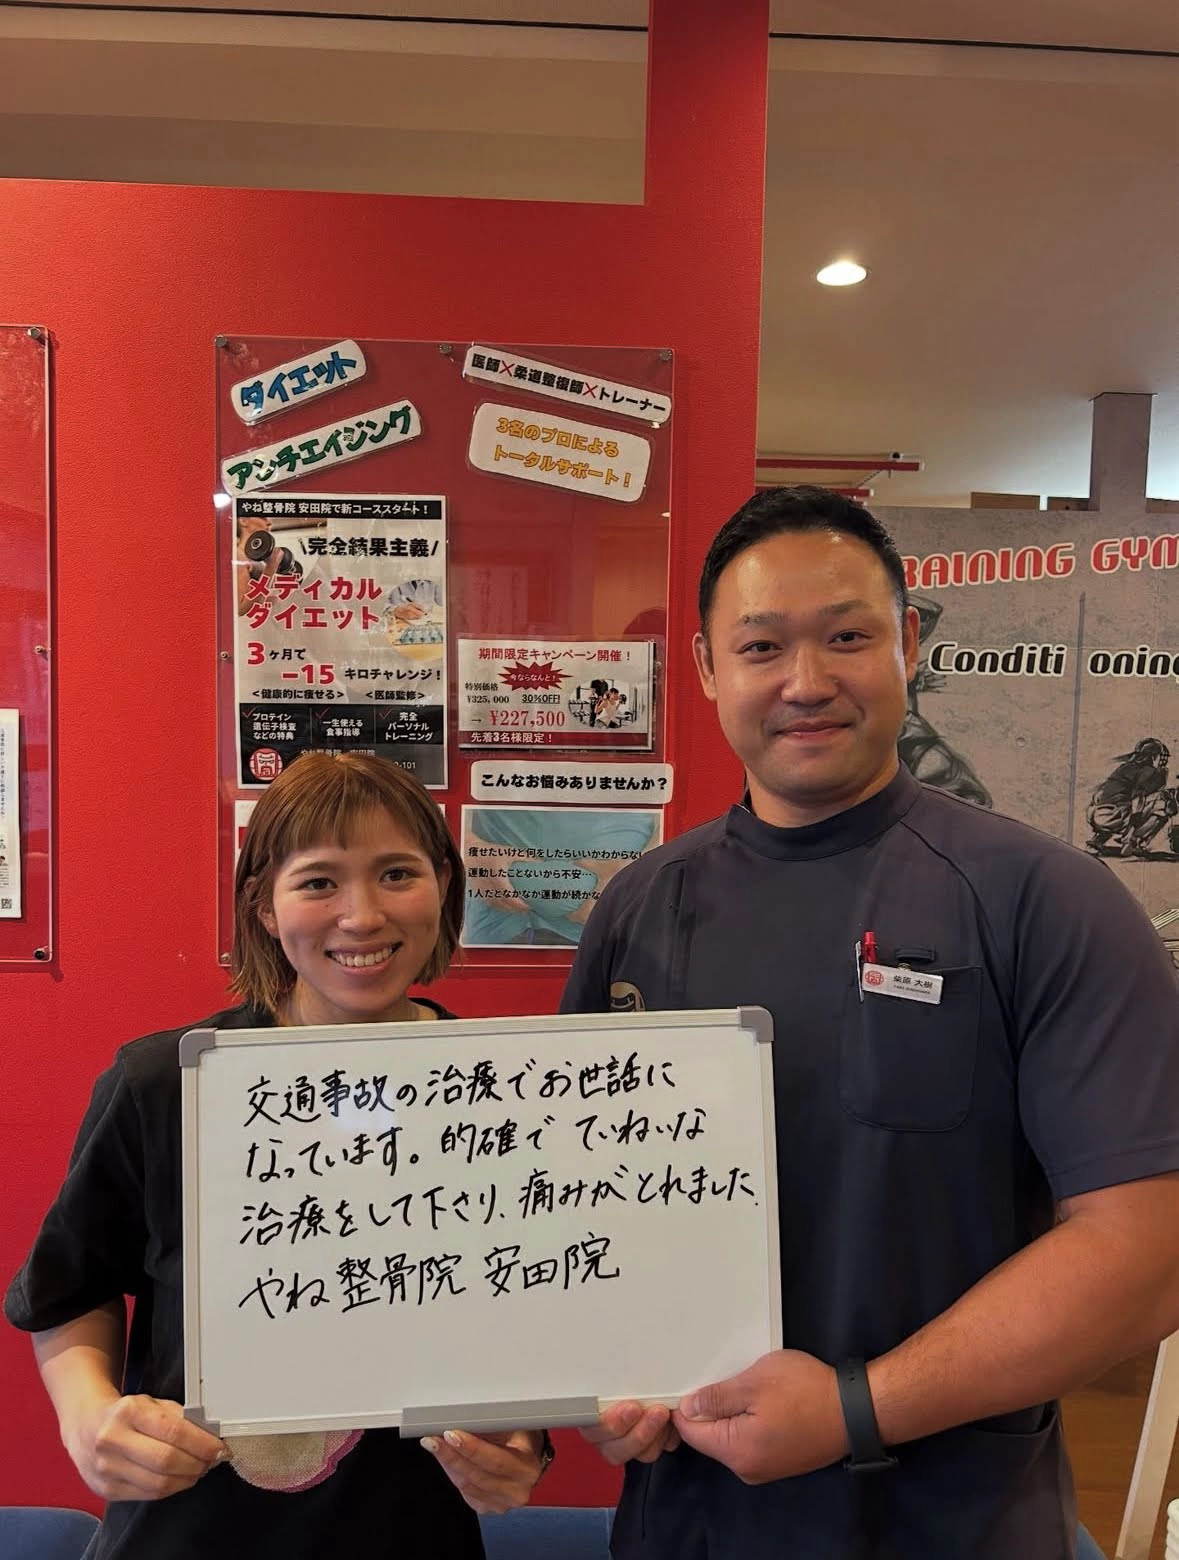 ダイエット
アンチエイジング
医師×柔道整復師×トレーナー
3名のプロによる
トータルサポート！
やね整骨院 安田院で新コーススタート！
\完全結果主義/
メディカル
ダイエット
3ヶ月で
-15 キロチャレンジ！
<健康的に痩せる> <医師監修>
プロテイン
遺伝子検査
などの特典
一生使える
食事指導
完全
パーソナル
トレーニング
やね整骨院 安田院
-101
期間限定キャンペーン開催！
今ならなんと！
特別価格
¥325,000 30%OFF!
→ ¥227,500
先着3名様限定！
こんなお悩みありませんか？
痩せたいけど何をしたらいいかわからない
運動したことないから不安…
1人だとなかなか運動が続かな
RAINING GYM
Conditi oning
柴原 大樹
交通事故の治療でお世話に
なっています。的確で ていねいな
治療をして下さり、痛みがとれました。
やね整骨院 安田院